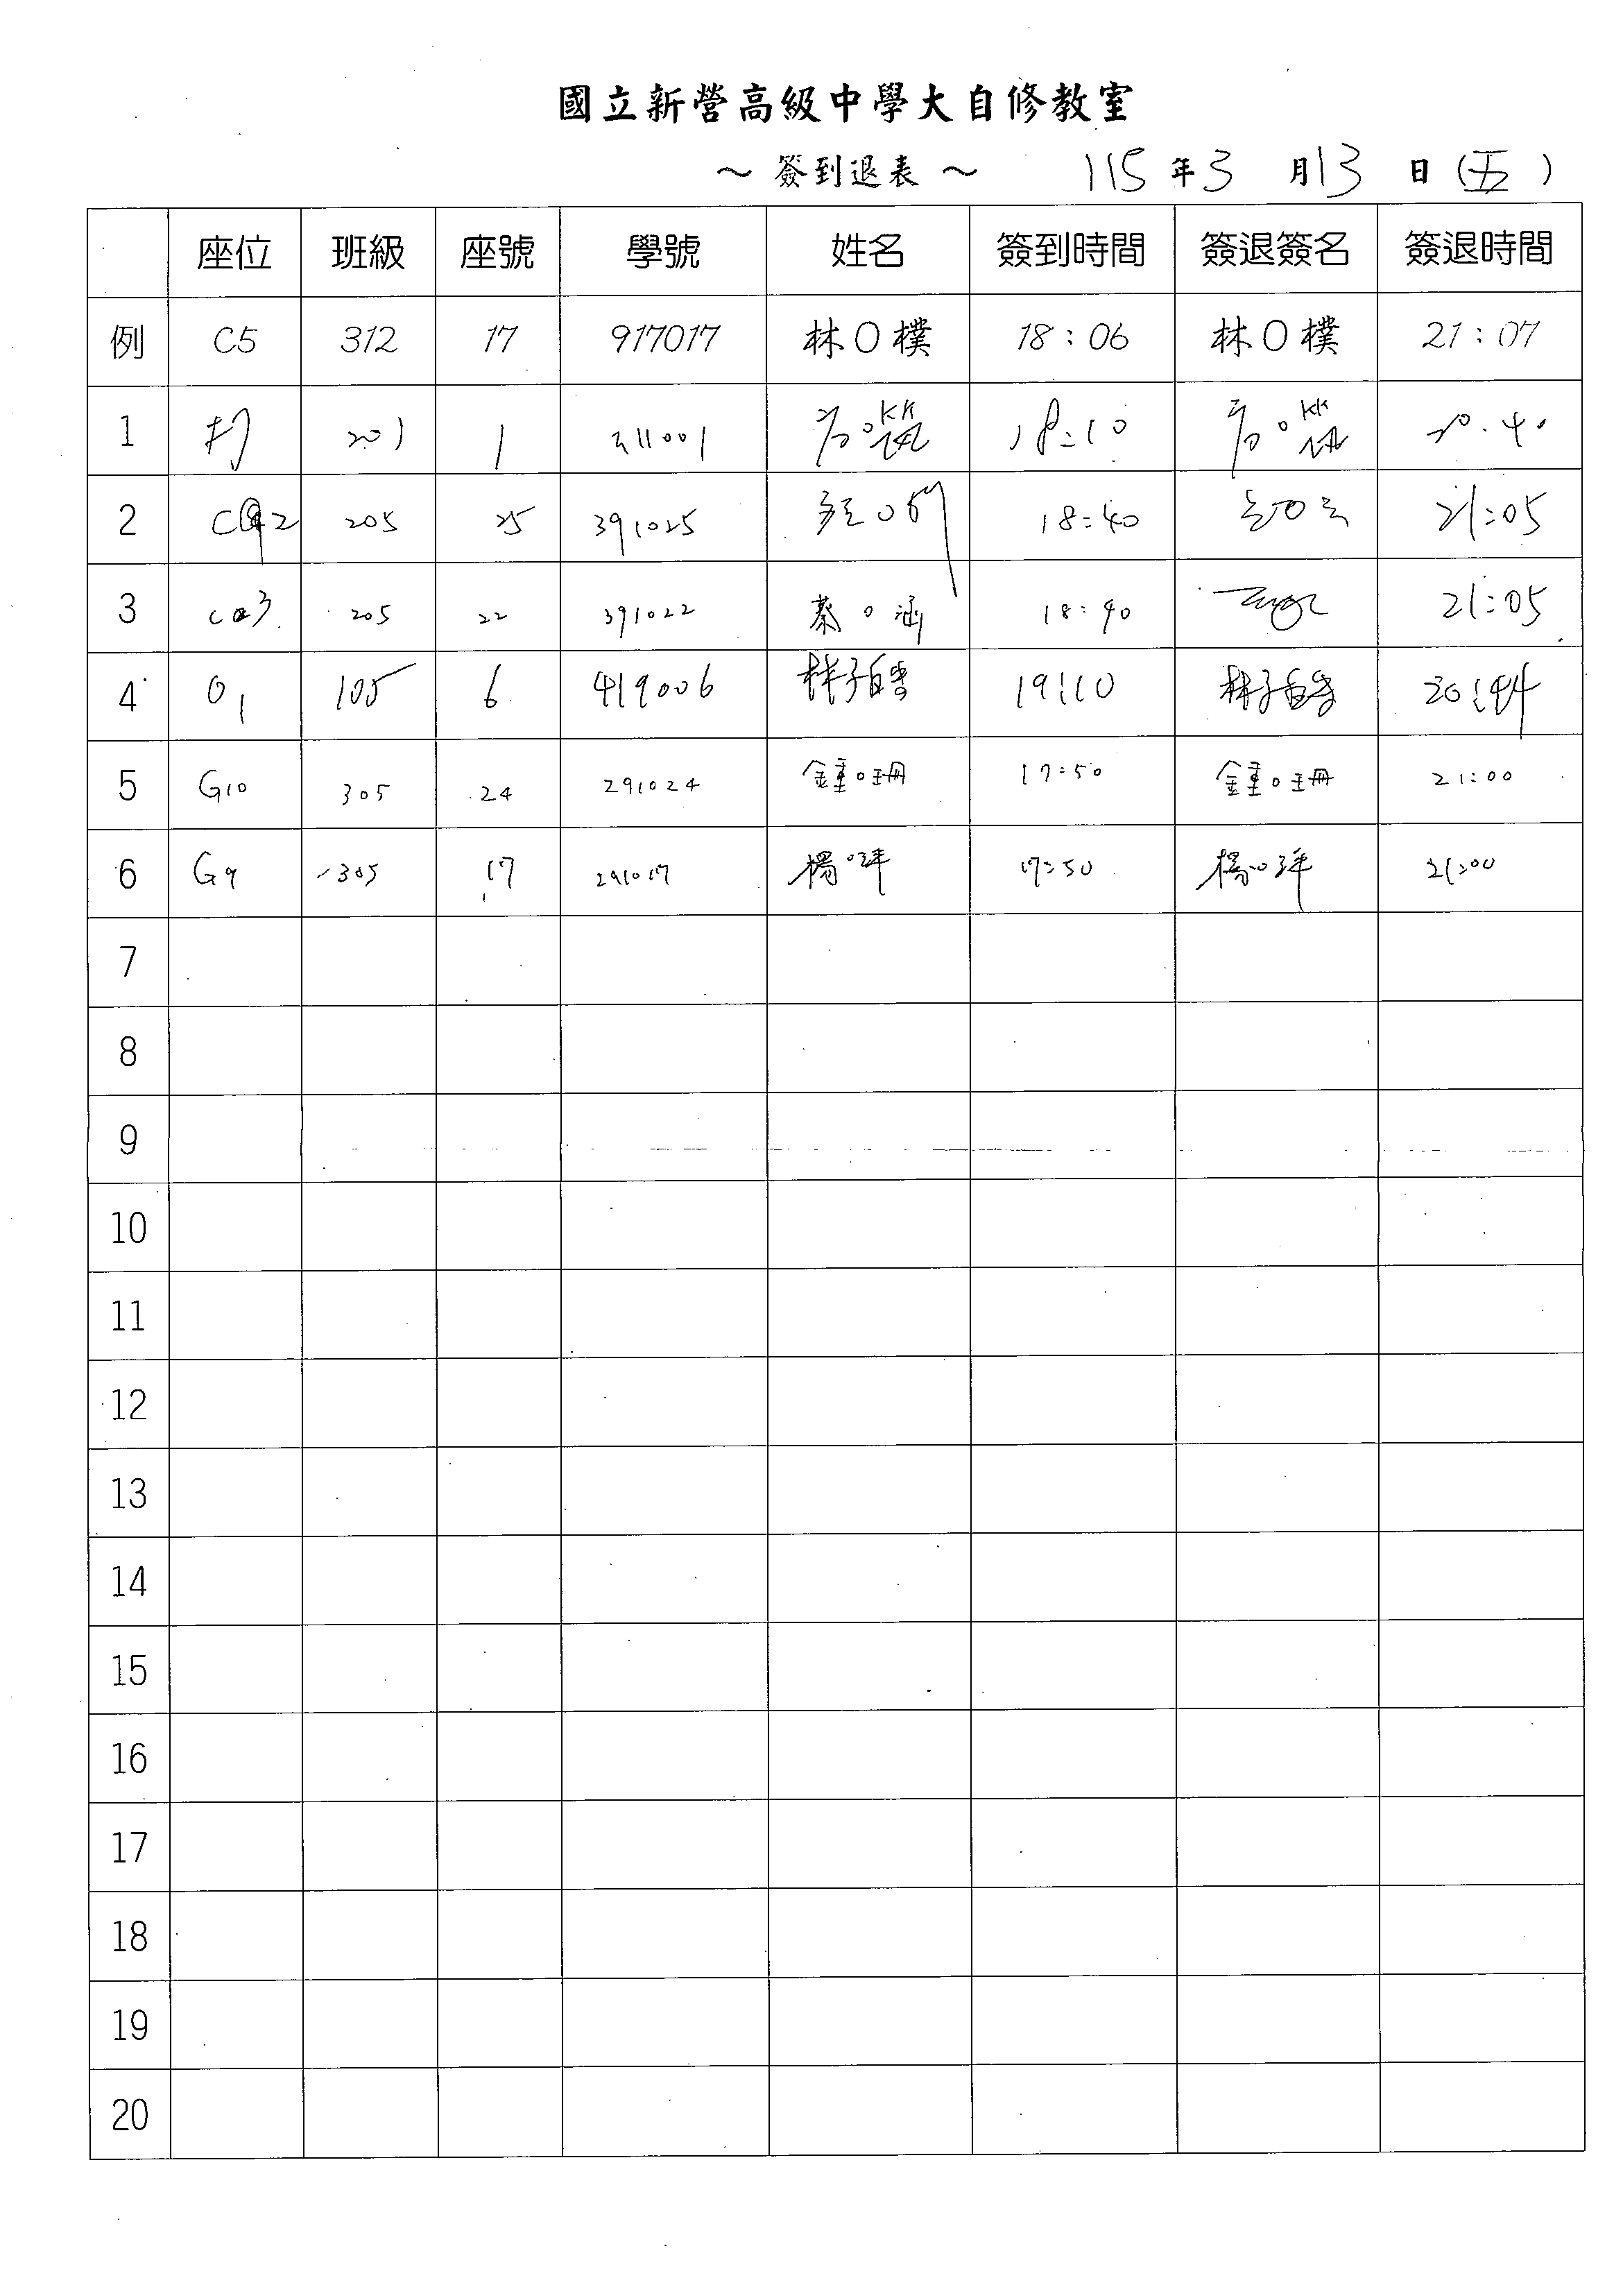 國立新營高級中學大自修教室
～ 簽到退表 ～ 115 年 3 月 13 日 (五)
座位 班級 座號 學號 姓名 簽到時間 簽退簽名 簽退時間
例 C5 312 17 917017 林O樸 18:06 林O樸 21:07
1 201 1 311001 18:10 20:40
2 205 25 391025 18:40 21:05
3 205 22 391022 蔡O涵 18:40 21:05
4 01 105 6 419006 林子 19:10 林子 20:44
5 G10 305 24 291024 鍾O珊 17:50 鍾O珊 21:00
6 G9 305 17 291017 楊O 17:50 楊O 21:00
7
8
9
10
11
12
13
14
15
16
17
18
19
20